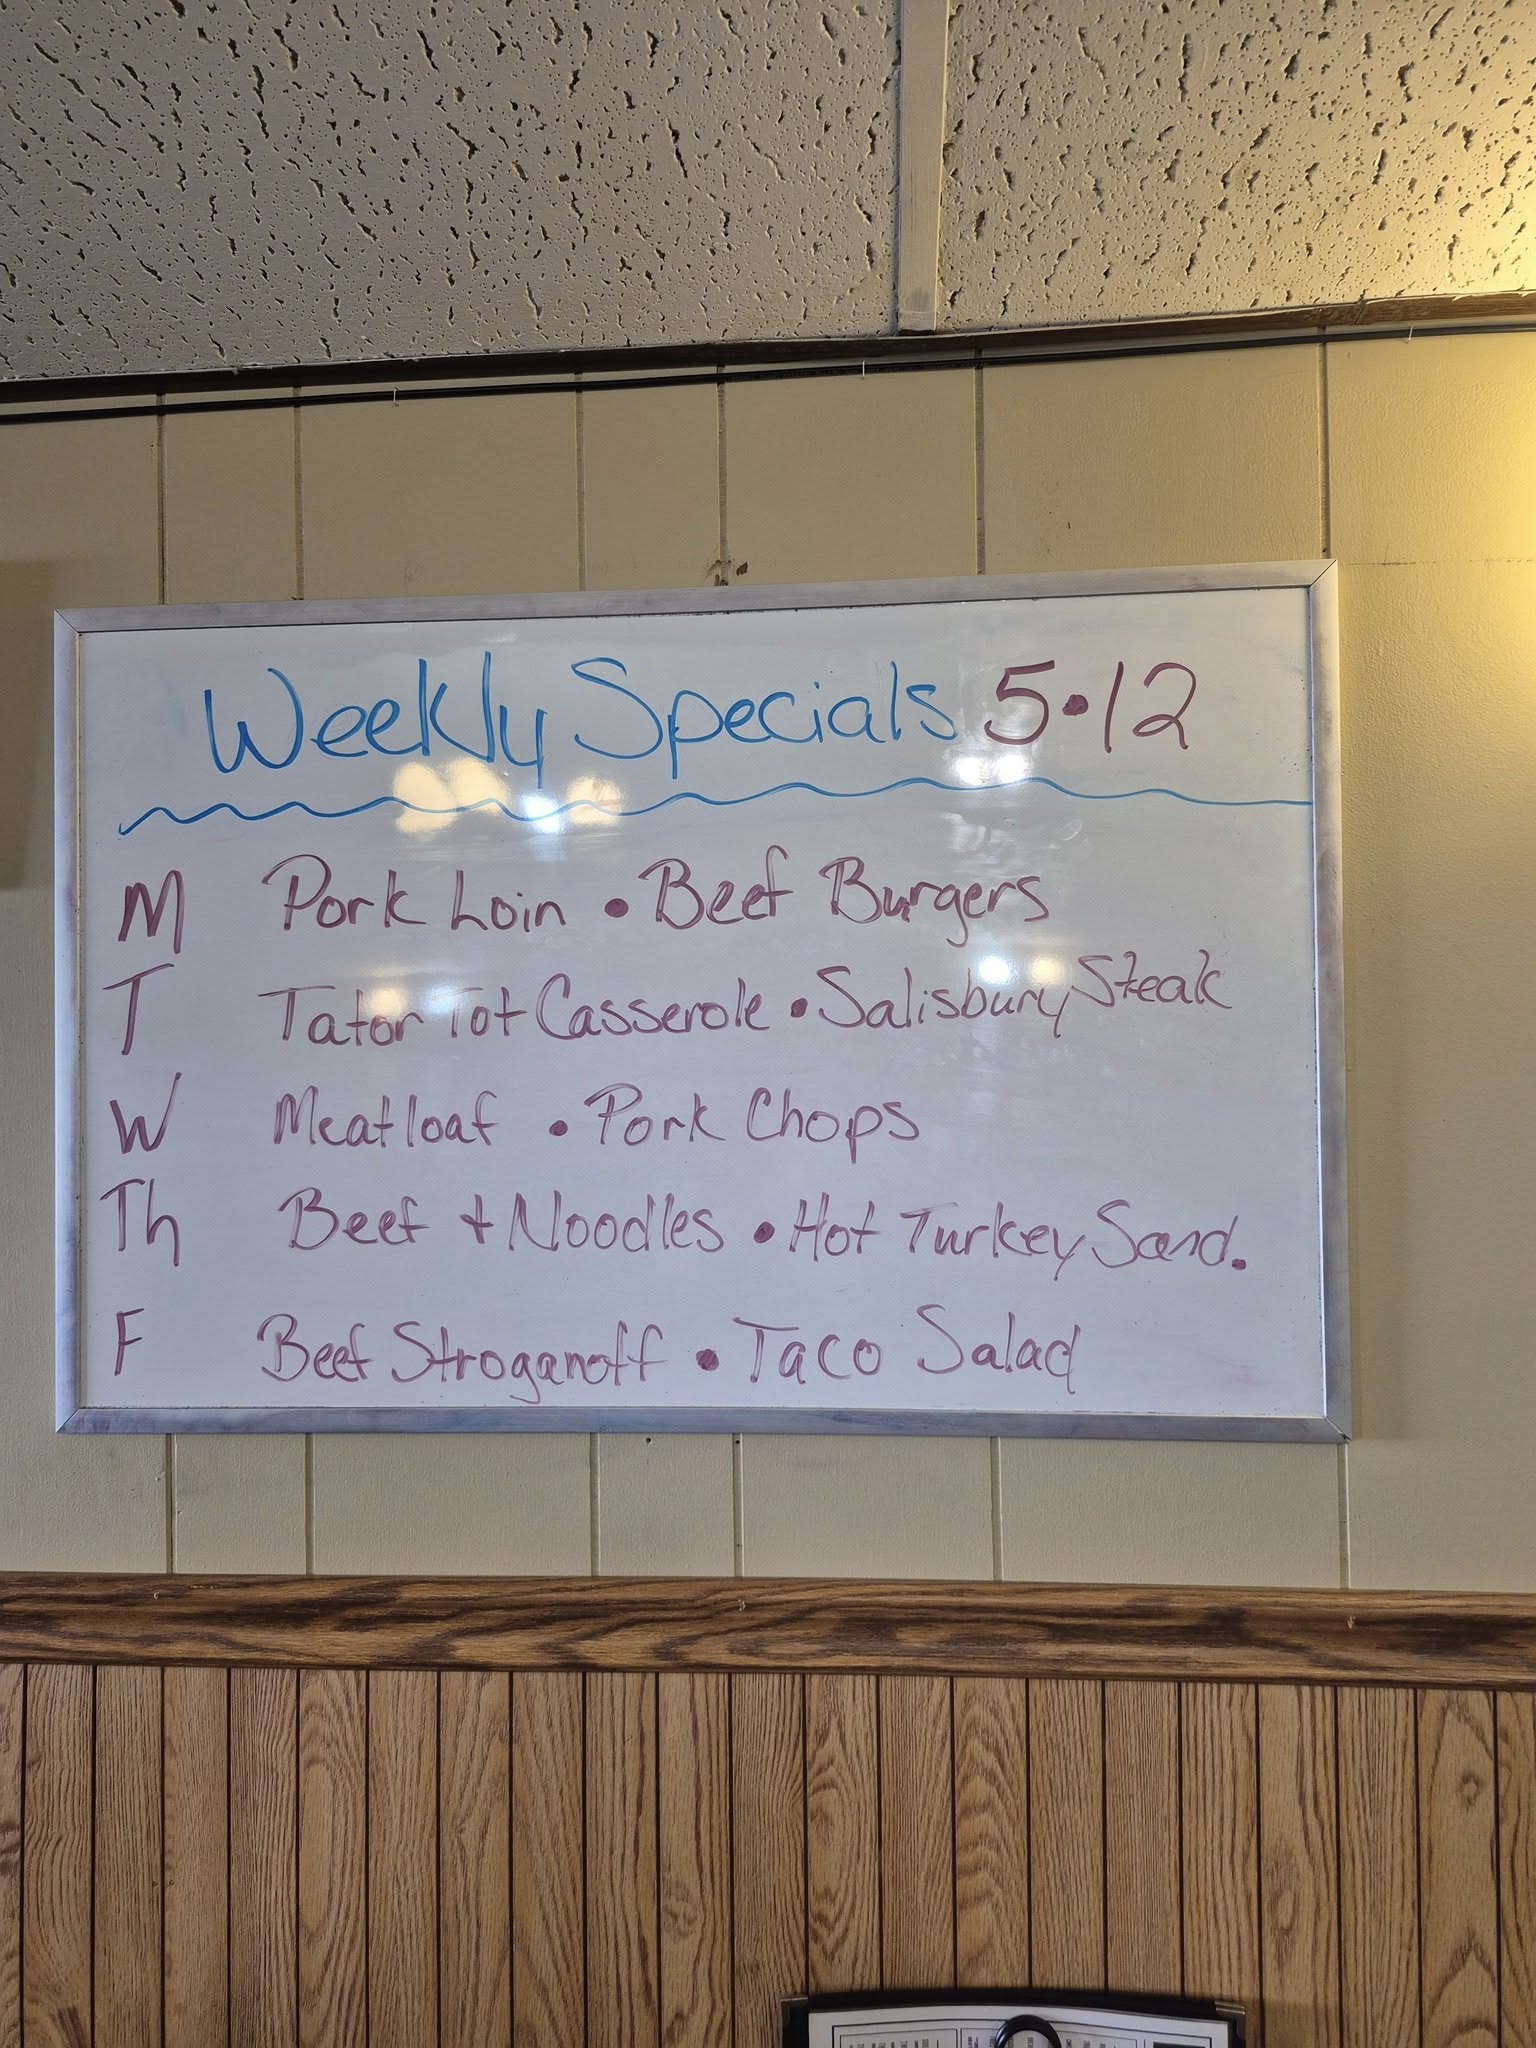 Weekly Specials 5•12
M Pork Loin • Beef Burgers
T Tator Tot Casserole • Salisbury Steak
W Meatloaf • Pork Chops
Th Beef + Noodles • Hot Turkey Sand.
F Beef Stroganoff • Taco Salad